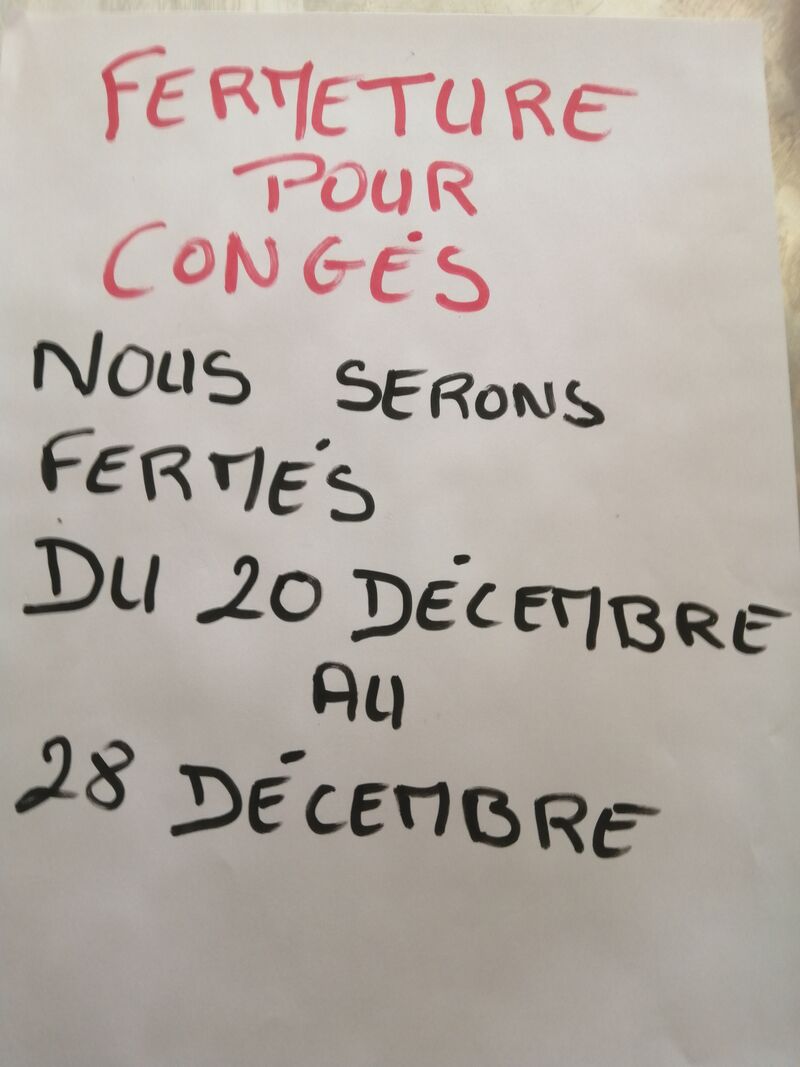 FERMETURE
POUR
CONGÉS
NOUS SERONS
FERMÉS
DU 20 DÉCEMBRE
AU
28 DÉCEMBRE